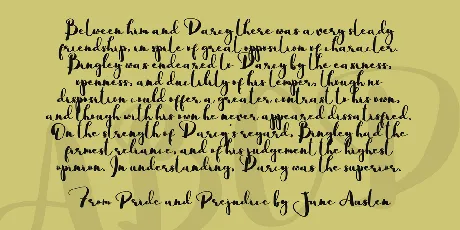 Between him and Darcy there was a very steady
friendship, in spite of great opposition of character.
Bingley was endeared to Darcy by the easiness,
openness, and ductility of his temper, though no
disposition could offer a greater contrast to his own,
and though with his own he never appeared dissatisfied.
On the strength of Darcy's regard, Bingley had the
firmest reliance, and of his judgement the highest
opinion. In understanding, Darcy was the superior.
From Pride and Prejudice by Jane Austen